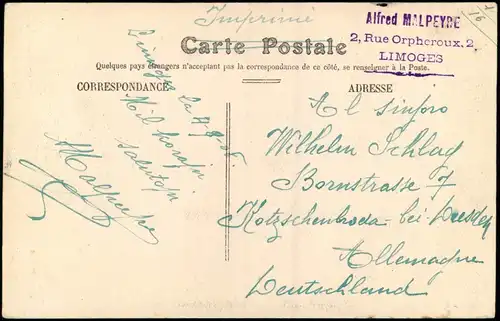 Imprimé
Alfred MALPEYRE
2, Rue Orpheroux, 2
LIMOGES
Carte Postale
Quelques pays étrangers n'acceptant pas la correspondance de ce côté, se renseigner à la Poste.
CORRESPONDANCE
ADRESSE
Limoges
salutojn
AMalpeyre
Al sinjoro
Wilhelm Schlag
Bornstrasse 7
Kötzschenbroda - bei - Dresden
Allemagne
Deutschland